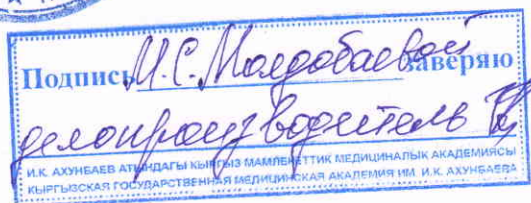 Подпись М.С. Молдобаевой заверяю
делопроизводитель
И.К. АХУНБАЕВ АТЫНДАГЫ КЫРГЫЗ МАМЛЕКЕТТИК МЕДИЦИНАЛЫК АКАДЕМИЯСЫ
КЫРГЫЗСКАЯ ГОСУДАРСТВЕННАЯ МЕДИЦИНСКАЯ АКАДЕМИЯ ИМ. И.К. АХУНБАЕВА